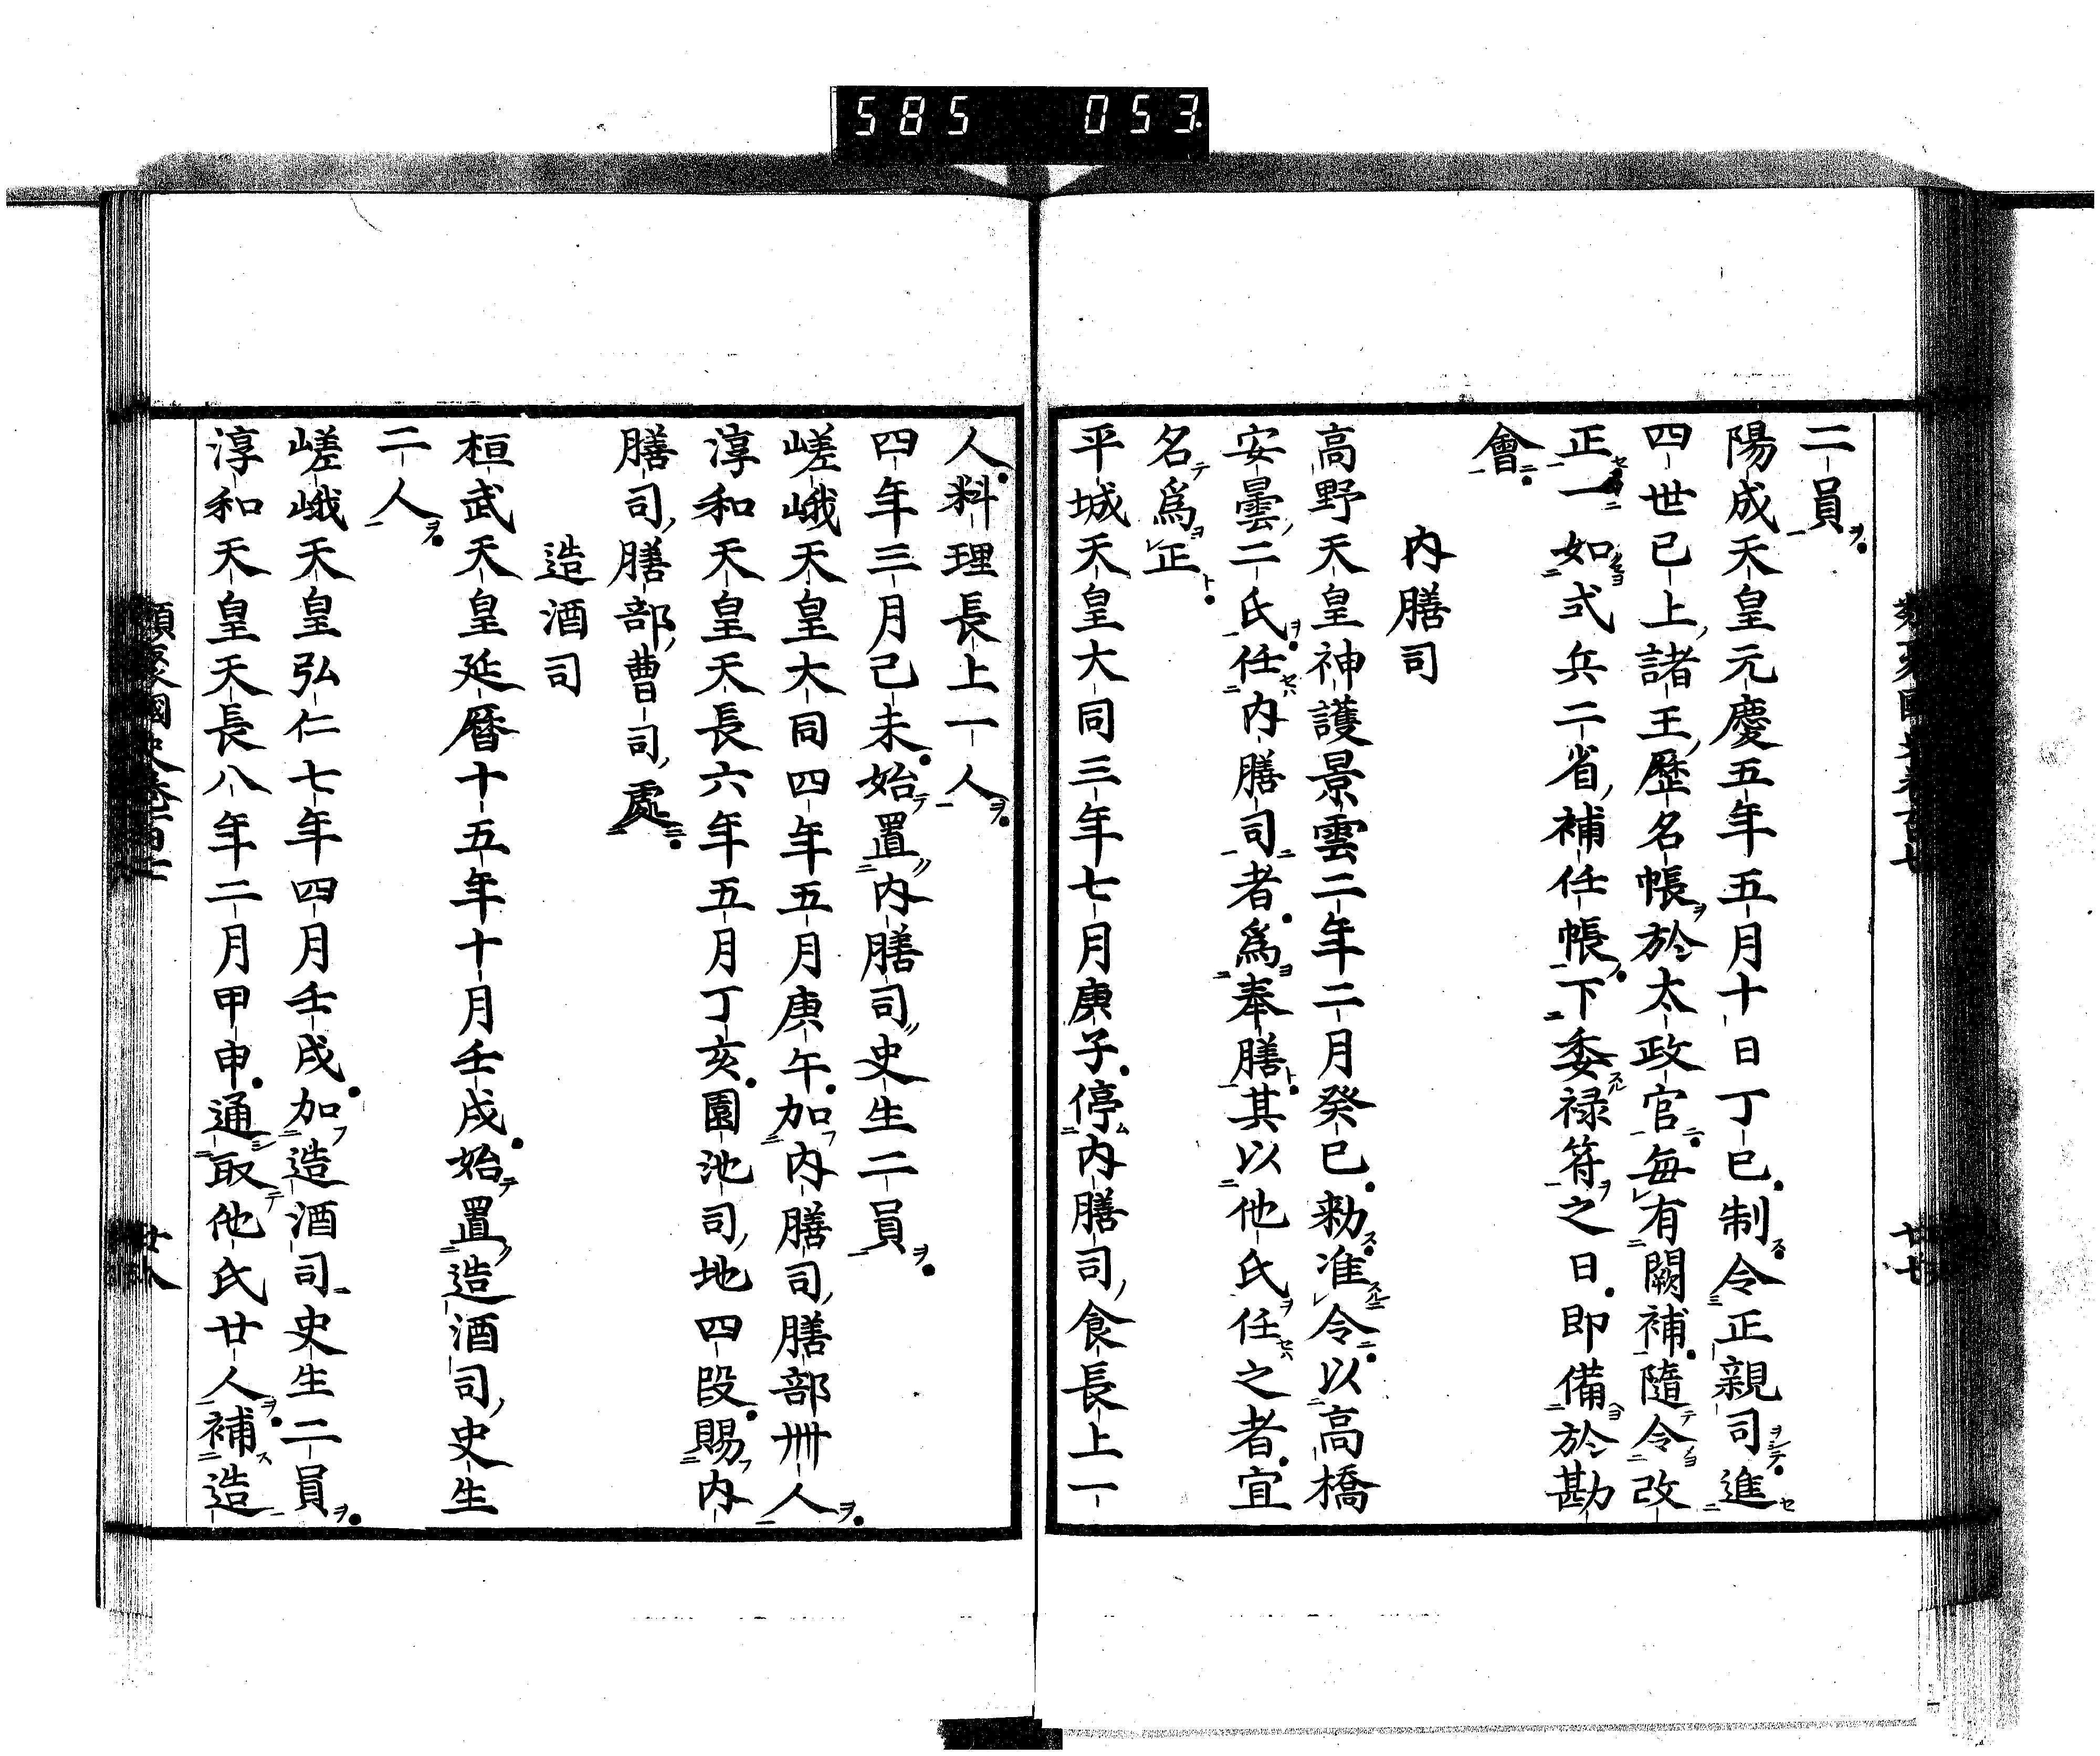 585 053
二員
陽成天皇元慶五年五月十日丁巳制令正親司進
四世已上諸王歷名帳於太政官每有闕補隨令改
正一如式兵二省補任帳下委祿符之日即備於勘
會
內膳司
高野天皇神護景雲二年二月癸巳勅准令以高橋
安曇二氏任內膳司者爲奉膳其以他氏任之者宜
名爲正
平城天皇大同三年七月庚子停內膳司食長上一
人料理長上一人
四年三月己未始置內膳司史生二員
嵯峨天皇大同四年五月庚午加內膳司膳部卌人
淳和天皇天長六年五月丁亥園池司地四段賜內
膳司膳部曹司處
造酒司
桓武天皇延曆十五年十月壬戌始置造酒司史生
二人
嵯峨天皇弘仁七年四月壬戌加造酒司史生二員
淳和天皇天長八年二月甲申通取他氏廿人補造
類聚國史卷百七
廿八